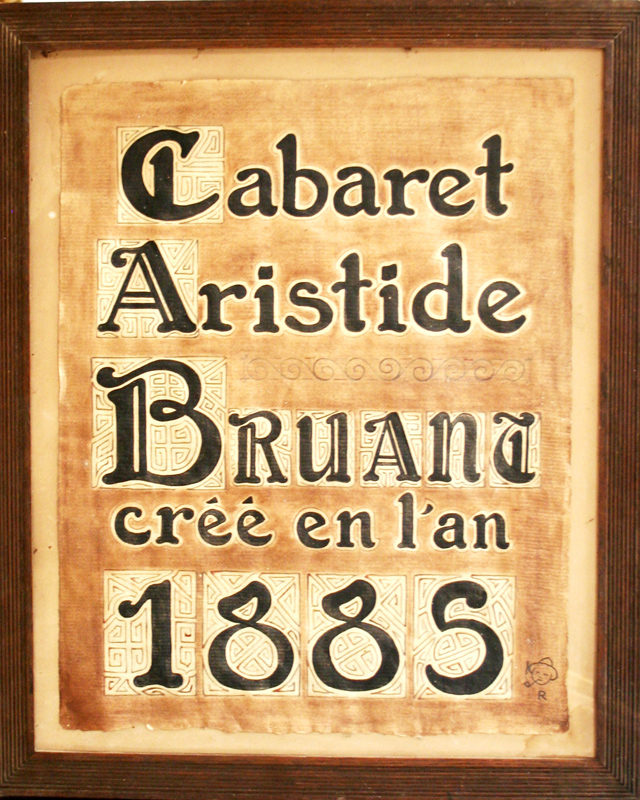 Cabaret
Aristide
BRUANT
créé en l'an
1885
R